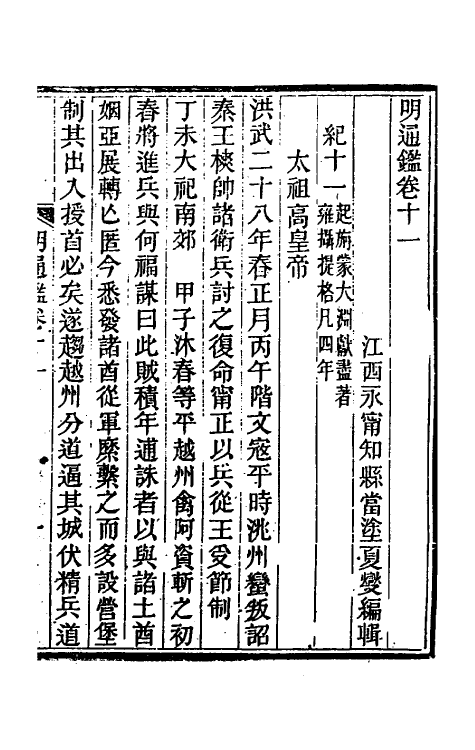 明通鑑卷十一
江西永甯知縣當塗夏燮編輯
紀十一起旃蒙大淵獻盡著
雍攝提格凡四年
太祖高皇帝
洪武二十八年春正月丙午階文寇平時洮州蠻叛詔
秦王樉帥諸衛兵討之復命甯正以兵從王受節制
丁未大祀南郊　甲子沐春等平越州禽阿資斬之初
春將進兵與何福謀曰此賊積年逋誅者以與諸土酋
姻亞展轉亾匿今悉發諸酋從軍縻繫之而多設營堡
制其出入授首必矣遂趨越州分道逼其城伏精兵道
明通鑑卷十一